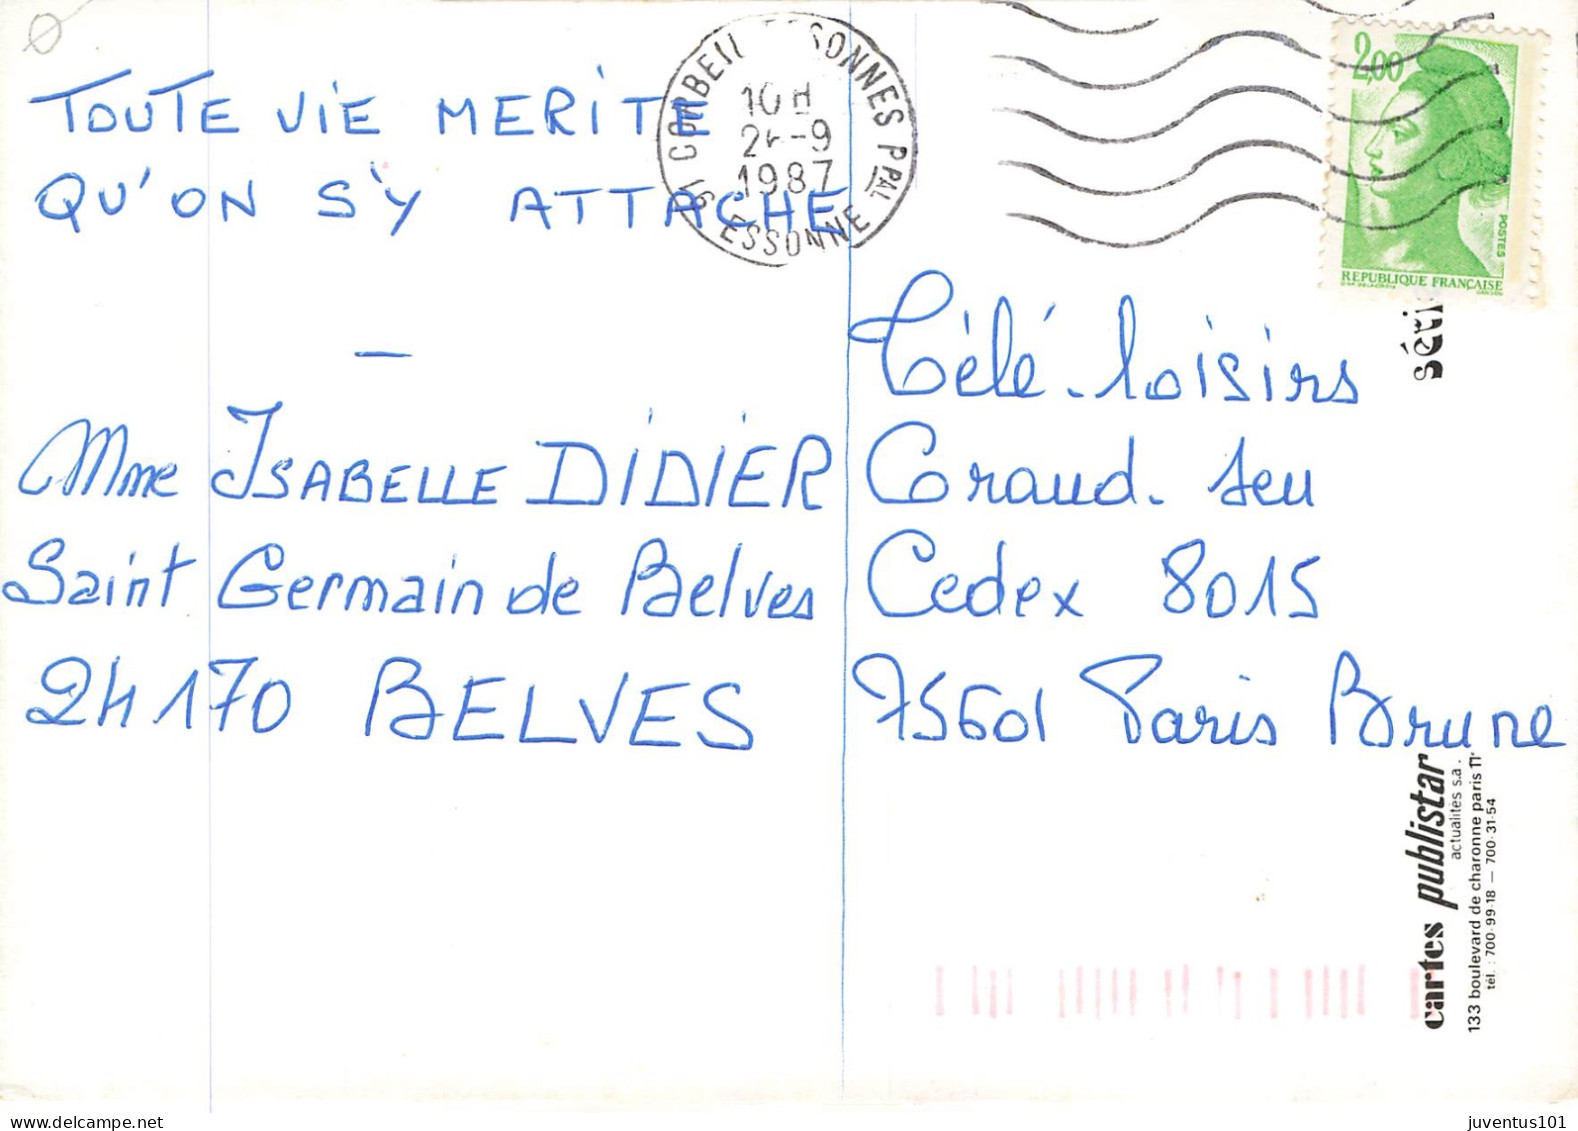 TOUTE VIE MERITE
QU'ON S'Y ATTACHE
—
Mme ISABELLE DIDIER
Saint Germain de Belves
24170 BELVES
10H
9
1987
91 CORBEIL ESSONNES PPAL
ESSONNE
2,00
POSTES
REPUBLIQUE FRANÇAISE
Télé-loisirs
Grand-Jeu
Cedex 8015
75601 Paris Brune
cartes publistar
actualités s.a.
133 boulevard de charonne paris 11e
tél.: 700-99-18 — 700-31-54
juventus101